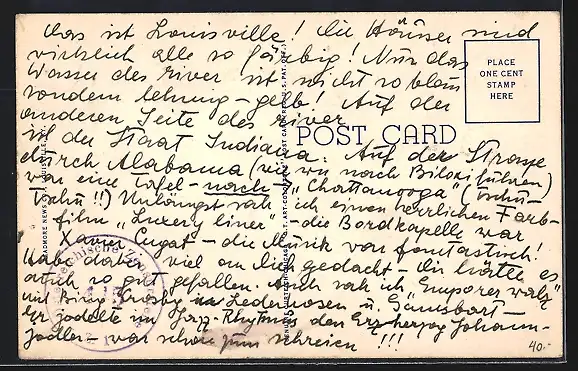 Das ist Louisville! Die Häuser sind
wirklich alle so färbig! Nur das
Wasser des river ist nicht so blau
sondern lehmig-gelb! Auf der
anderen Seite des river
ist der Staat Indiana. Auf der Strasse
durch Alabama (wie wir nach Biloxi führen)
war eine Tafel - nach "Chattanooga" (tschu-
tschu!!) Unlängst sah ich einen herrlichen Farb-
film "Luxery liner" - die Bordkapelle war
Xavier Cugat - die Musik von fantastisch!
Habe dabei viel an Dich gedacht - dir hätte es
auch so gut gefallen. Auch sah ich "Emperor walz"
mit Bing Crosby in Lederhosen u. Gamsbart -
Er jodelte im Jazz-Rhytmus den Erzherzog Johann-
Jodler - war schon zum schreien!!!
POST CARD
PLACE
ONE CENT
STAMP
HERE
40.-